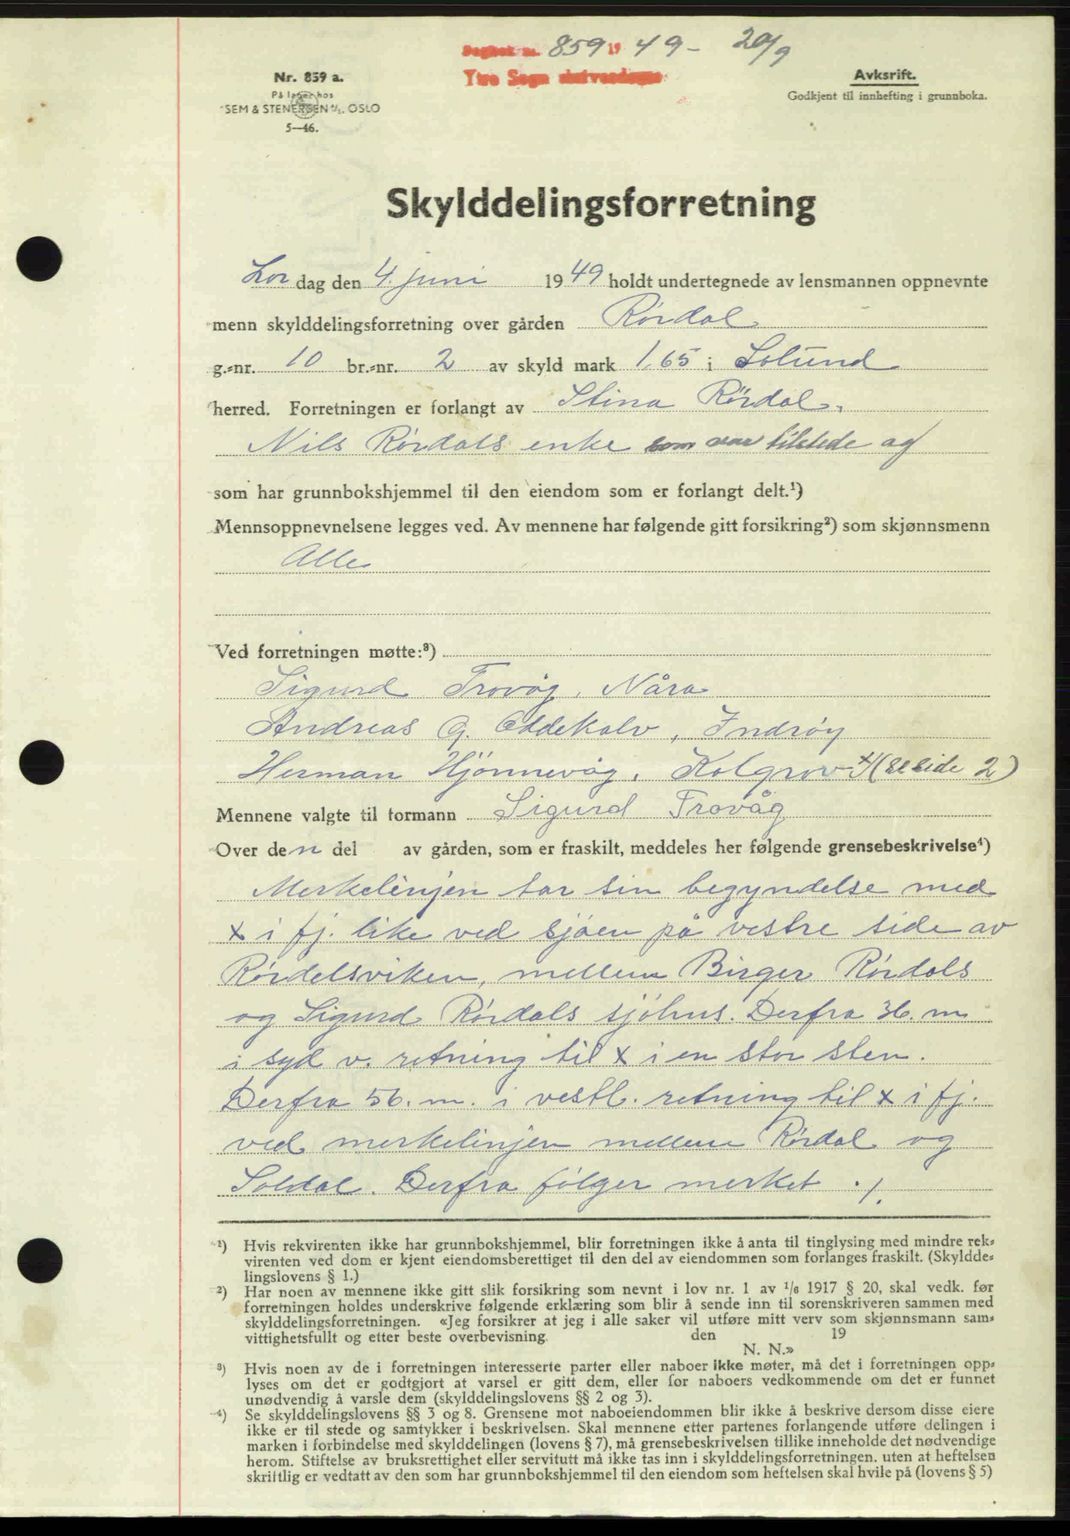 Dagbok nr. 859 19 49 - 20/9
Ytre Sogn skriverdømme
Nr. 859 a.
På lager hos
SEM & STENERSEN A/S. OSLO
5—46.
Avkskrift.
Godkjent til innhefting i grunnboka.
Skylddelingsforretning
Lør dag den 4. juni 1949 holdt undertegnede av lensmannen oppnevnte
menn skylddelingsforretning over gården Rördal
g.-nr. 10 br.-nr. 2 av skyld mark 1,65 i Solund
herred. Forretningen er forlangt av Stina Rördal,
Nils Rördals enke som var tilstede og
som har grunnbokshjemmel til den eiendom som er forlangt delt.¹)
Mennsoppnevnelsene legges ved. Av mennene har følgende gitt forsikring²) som skjønnsmenn
Alle
Ved forretningen møtte:³)
Sigurd Trovåg, Nåra
Andreas G. Oddekalv, Indröy
Herman Hjönnevåg, Kolgrov x) (se side 2)
Mennene valgte til formann Sigurd Trovåg
Over den del av gården, som er fraskilt, meddeles her følgende grensebeskrivelse⁴)
Merkelinjen tar sin begyndelse med
x i fj. like ved sjöen på vestre side av
Rördalsviken, mellem Birger Rördals
og Sigurd Rördals sjöhus. Derfra 36. m
i syd v. retning til x i en stor sten.
Derfra 56. m. i vestl. retning til x i fj.
ved merkelinjen mellem Rördal og
Soldal. Derfra fölger merket ./.
¹) Hvis rekvirenten ikke har grunnbokshjemmel, blir forretningen ikke å anta til tinglysing med mindre rek-
virenten ved dom er kjent eiendomsberettiget til den del av eiendommen som forlanges fraskilt. (Skyldde-
lingslovens § 1.)
²) Har noen av mennene ikke gitt slik forsikring som nevnt i lov nr. 1 av 1/6 1917 § 20, skal vedk. før
forretningen holdes underskrive følgende erklæring som blir å sende inn til sorenskriveren sammen med
skylddelingsforretningen. «Jeg forsikrer at jeg i alle saker vil utføre mitt verv som skjønnsmann sam-
vittighetsfullt og etter beste overbevisning. den 19
N. N.»
³) Hvis noen av de i forretningen interesserte parter eller naboer ikke møter, må det i forretningen opp-
lyses om det er godtgjort at varsel er gitt dem, eller for naboers vedkommende om det er funnet
unødvendig å varsle dem (skylddelingslovens §§ 2 og 3).
⁴) Se skylddelingslovens §§ 3 og 8. Grensene mot naboeiendommen blir ikke å beskrive dersom disse eiere
ikke er til stede og samtykker i beskrivelsen. Skal mennene etter partenes forlangende utføre delingen i
marken i forbindelse med skylddelingen (lovens § 7), må grensebeskrivelsen tillike inneholde det nødvendige
herom. Stiftelse av bruksrettighet eller servitutt må ikke tas inn i skylddelingsforretningen, uten at heftelsen
skriftlig er vedtatt av den som har grunnbokshjemmel til den eiendom som heftelsen skal hvile på (lovens § 5)